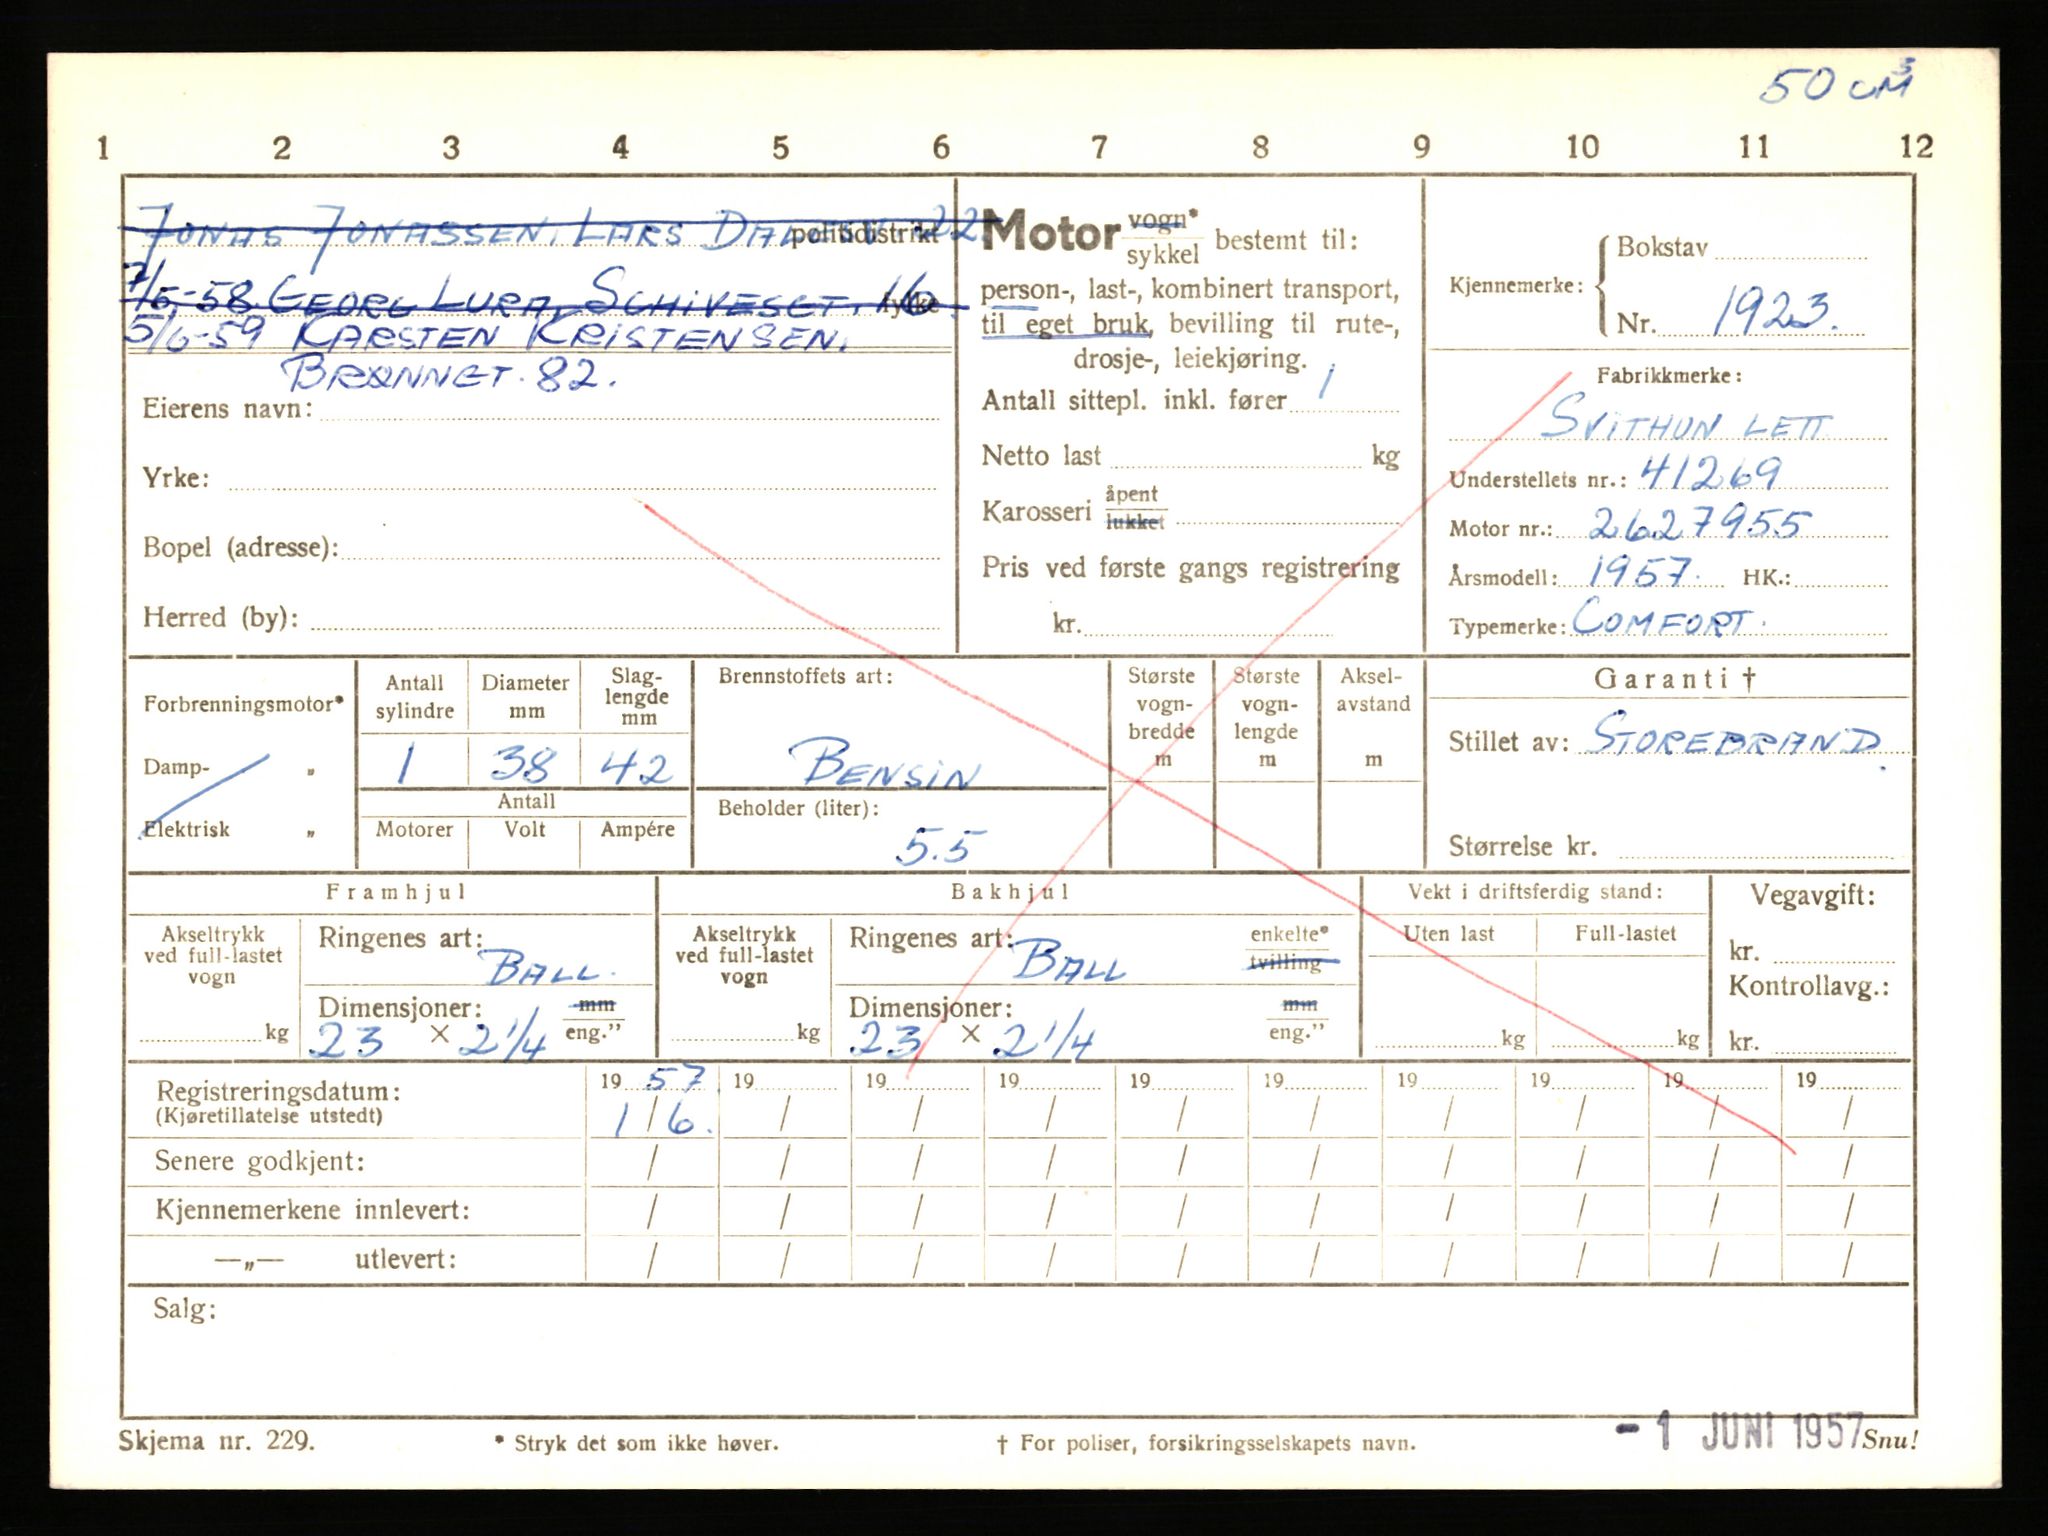 50 cm³
1 2 3 4 5 6 7 8 9 10 11 12
Jonas Jonassen, Lars 22. politidistrikt
7/5-58. Georg Lura, 16 fylke
5/6-59 Karsten Kristensen.
Brønnet. 82.
Eierens navn:
Yrke:
Bopel (adresse):
Herred (by):
Motor vogn* sykkel bestemt til:
person-, last-, kombinert transport,
til eget bruk, bevilling til rute-,
drosje-, leiekjøring.
Antall sittepl. inkl. fører 1
Netto last kg
Karosseri åpent lukket
Pris ved første gangs registrering
kr.
Kjennemerke: Bokstav
Nr. 1923.
Fabrikkmerke:
Svithun Lett
Understellets nr.: 41269
Motor nr.: 2627955
Årsmodell: 1957. HK.:
Typemerke: Comfort.
Forbrenningsmotor*
Damp- „
Elektrisk „
Antall sylindre 1
Diameter mm 38
Slag-lengde mm 42
Antall
Motorer Volt Ampére
Brennstoffets art:
Bensin
Beholder (liter):
5.5
Største vogn-bredde m
Største vogn-lengde m
Aksel-avstand m
Garanti †
Stillet av: Storebrand.
Størrelse kr.
Framhjul
Akseltrykk ved full-lastet vogn kg
Ringenes art: Ball.
Dimensjoner: mm eng."
23 × 2 1/4
Bakhjul
Akseltrykk ved full-lastet vogn kg
Ringenes art: Ball enkelte* tvilling
Dimensjoner: mm eng."
23 × 2 1/4
Vekt i driftsferdig stand:
Uten last Full-lastet
kg kg
Vegavgift:
kr.
Kontrollavg.:
kr.
Registreringsdatum: 19 57. 19 19 19 19 19 19 19 19 19
(Kjøretillatelse utstedt) 1 / 6. / / / / / / / / /
Senere godkjent: / / / / / / / / / /
Kjennemerkene innlevert: / / / / / / / / / /
—„— utlevert: / / / / / / / / / /
Salg:
Skjema nr. 229. * Stryk det som ikke høver. † For poliser, forsikringsselskapets navn. - 1 JUNI 1957 Snu!